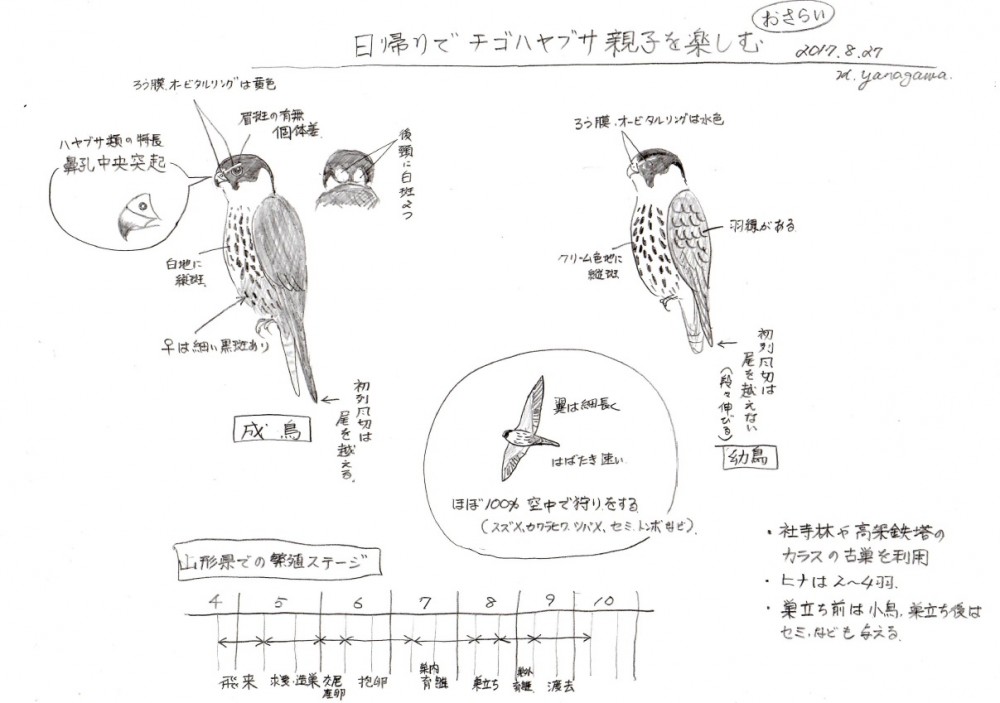 おさらい
日帰りで チゴハヤブサ 親子を楽しむ
2017.8.27
M. Yanagawa.
ろう膜.オービタルリングは黄色
眉斑の有無
個体差
ハヤブサ類の特長
鼻孔中央突起
後頭に白斑2つ
白地に
縦斑
♀は細い黒斑あり
初列風切は
尾を越える.
成鳥
ろう膜.オービタルリングは水色
羽縁がある
クリーム色地に
縦斑
初列風切は
尾を越えない
(段々伸びる)
幼鳥
翼は細長く
はばたき速い
ほぼ100% 空中で狩りをする
(スズメ,カワラヒワ,ツバメ,セミ,トンボなど).
・社寺林や高架鉄塔の
カラスの古巣を利用
・ヒナは2～4羽.
・巣立ち前は小鳥,巣立ち後は
セミ,なども与える.
山形県での繁殖ステージ
4 5 6 7 8 9 10
飛来
求愛・造巣
交尾
産卵
抱卵
巣内
育雛
巣立ち
巣外
育雛
渡去